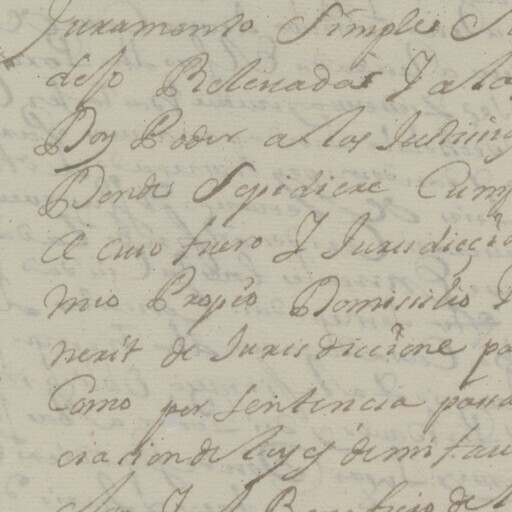 Juramento Simple
deso Relevada Y a la
Doy Poder a las Justicias
Donde Sepidiere Cump
A cuio fuero Y Jurisdiccio
mio Propio Domisilio Y
nerit de Jurisdiccione pa
Como por Sentencia pasa
ciacion de leyes de mi fau